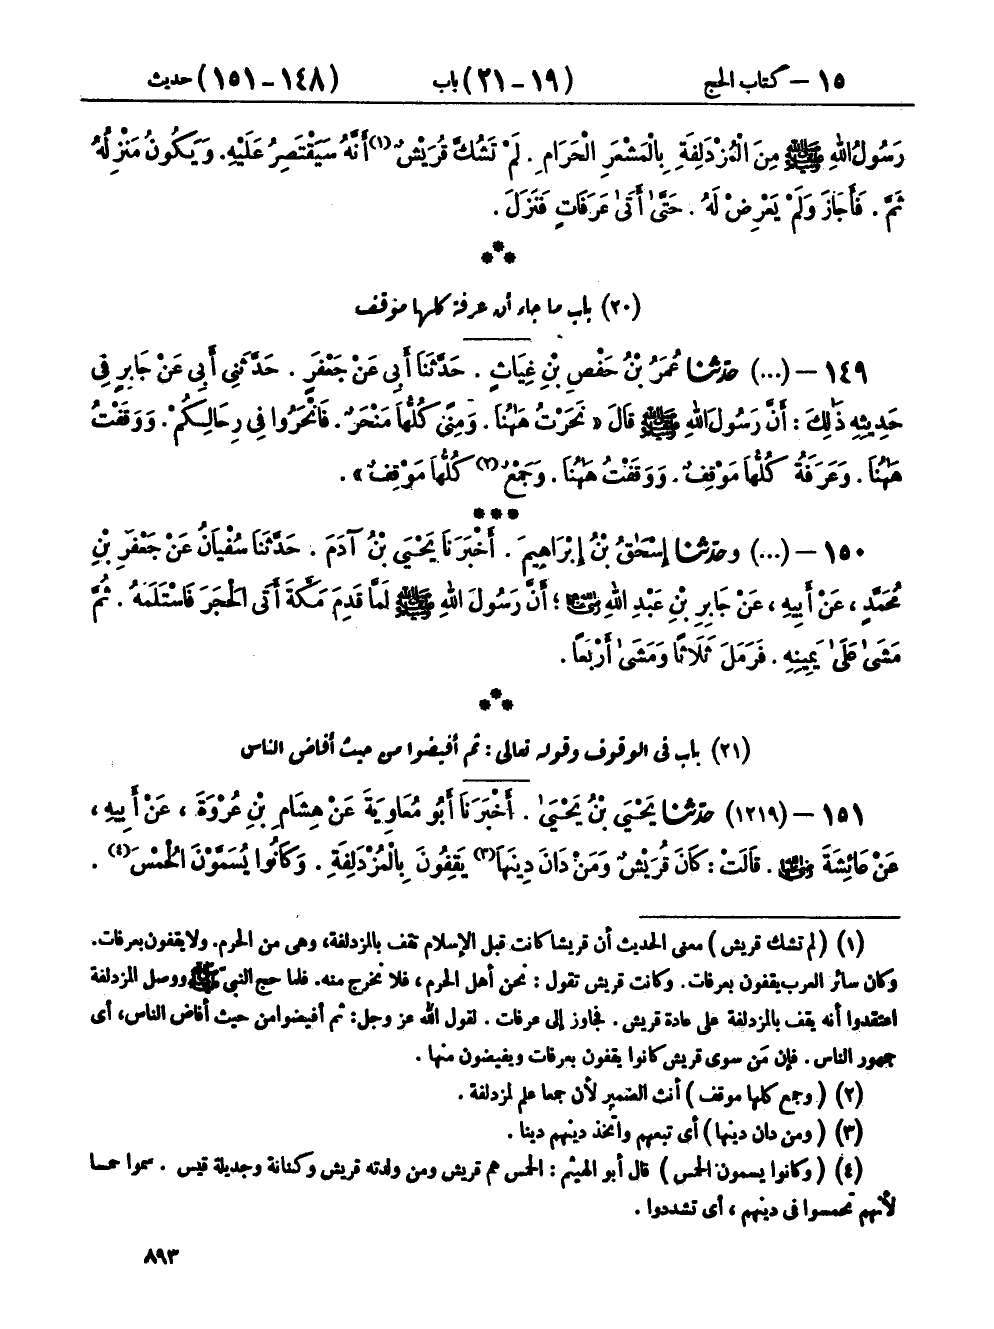 ١٥ – كتاب الحج (١٩ – ٢١) باب (١٤٨ – ١٥١) حديث
رَسُولُ اللهِ ﷺ مِنَ الْمُزْدَلِفَةِ بِالْمَشْعَرِ الْحَرَامِ . لَمْ تَشُكَّ قُرَيْشٌ(١) أَنَّهُ سَيَقْتَصِرُ عَلَيْهِ. وَيَكُونُ مَنْزِلُهُ
ثَمَّ . فَأَجَازَ وَلَمْ يَعْرِضْ لَهُ . حَتَّىٰ أَتَىٰ عَرَفَاتٍ فَنَزَلَ .
(٢٠) باب ما جاء أن عرفة كلها موقف
١٤٩ – (...) حدّثنا عُمَرُ بْنُ حَفْصِ بْنِ غِيَاثٍ . حَدَّثَنَا أَبِي عَنْ جَعْفَرٍ . حَدَّثَنِي أَبِي عَنْ جَابِرٍ فِي
حَدِيثِهِ ذَٰلِكَ : أَنَّ رَسُولَ اللهِ ﷺ قَالَ « نَحَرْتُ هَٰهُنَا . وَمِنًى كُلُّهَا مَنْحَرٌ . فَانْحَرُوا فِي رِحَالِكُمْ . وَوَقَفْتُ
هَٰهُنَا . وَعَرَفَةُ كُلُّهَا مَوْقِفٌ . وَوَقَفْتُ هَٰهُنَا . وَجَمْعٌ(٢) كُلُّهَا مَوْقِفٌ » .
١٥٠ – (...) وحدّثنا إِسْحَٰقُ بْنُ إِبْرَاهِيمَ . أَخْبَرَنَا يَحْيَى بْنُ آدَمَ . حَدَّثَنَا سُفْيَانُ عَنْ جَعْفَرِ بْنِ
مُحَمَّدٍ ، عَنْ أَبِيهِ ، عَنْ جَابِرِ بْنِ عَبْدِ اللهِ رضي الله عنهما ؛ أَنَّ رَسُولَ اللهِ ﷺ لَمَّا قَدِمَ مَكَّةَ أَتَى الْحَجَرَ فَاسْتَلَمَهُ . ثُمَّ
مَشَىٰ عَلَىٰ يَمِينِهِ . فَرَمَلَ ثَلَاثًا وَمَشَىٰ أَرْبَعًا .
(٢١) باب فى الوقوف وقوله تعالى : ثم أفيضوا من حيث أفاض الناس
١٥١ – (١٢١٩) حدّثنا يَحْيَى بْنُ يَحْيَىٰ . أَخْبَرَنَا أَبُو مُعَاوِيَةَ عَنْ هِشَامِ بْنِ عُرْوَةَ ، عَنْ أَبِيهِ ،
عَنْ عَائِشَةَ رضي الله عنها . قَالَتْ : كَانَ قُرَيْشٌ وَمَنْ دَانَ دِينَهَا(٣) يَقِفُونَ بِالْمُزْدَلِفَةِ . وَكَانُوا يُسَمَّوْنَ الْحُمْسَ(٤) .
(١) (لم تشك قريش) معنى الحديث أن قريشا كانت قبل الإسلام تقف بالمزدلفة، وهى من الحرم. ولا يقفون بعرفات.
وكان سائر العرب يقفون بعرفات. وكانت قريش تقول : نحن أهل الحرم ، فلا نخرج منه. فلما حج النبي ﷺ ووصل المزدلفة
اعتقدوا أنه يقف بالمزدلفة على عادة قريش . فجاوز إلى عرفات . لقول الله عز وجل: ثم أفيضوا من حيث أفاض الناس، أى
جمهور الناس . فإن مَن سوى قريش كانوا يقفون بعرفات ويفيضون منها .
(٢) (وجمع كلها موقف) أنث الضمير لأن جمعا علم لمزدلفة .
(٣) (ومن دان دينها) أى تبعهم واتخذ دينهم دينا .
(٤) (وكانوا يسمون الحمس) قال أبو الهيثم : الحمس هم قريش ومن ولدته قريش وكنانة وجديلة قيس . سموا حمسا
لأنهم تحمسوا فى دينهم ، أى تشددوا .
٨٩٣